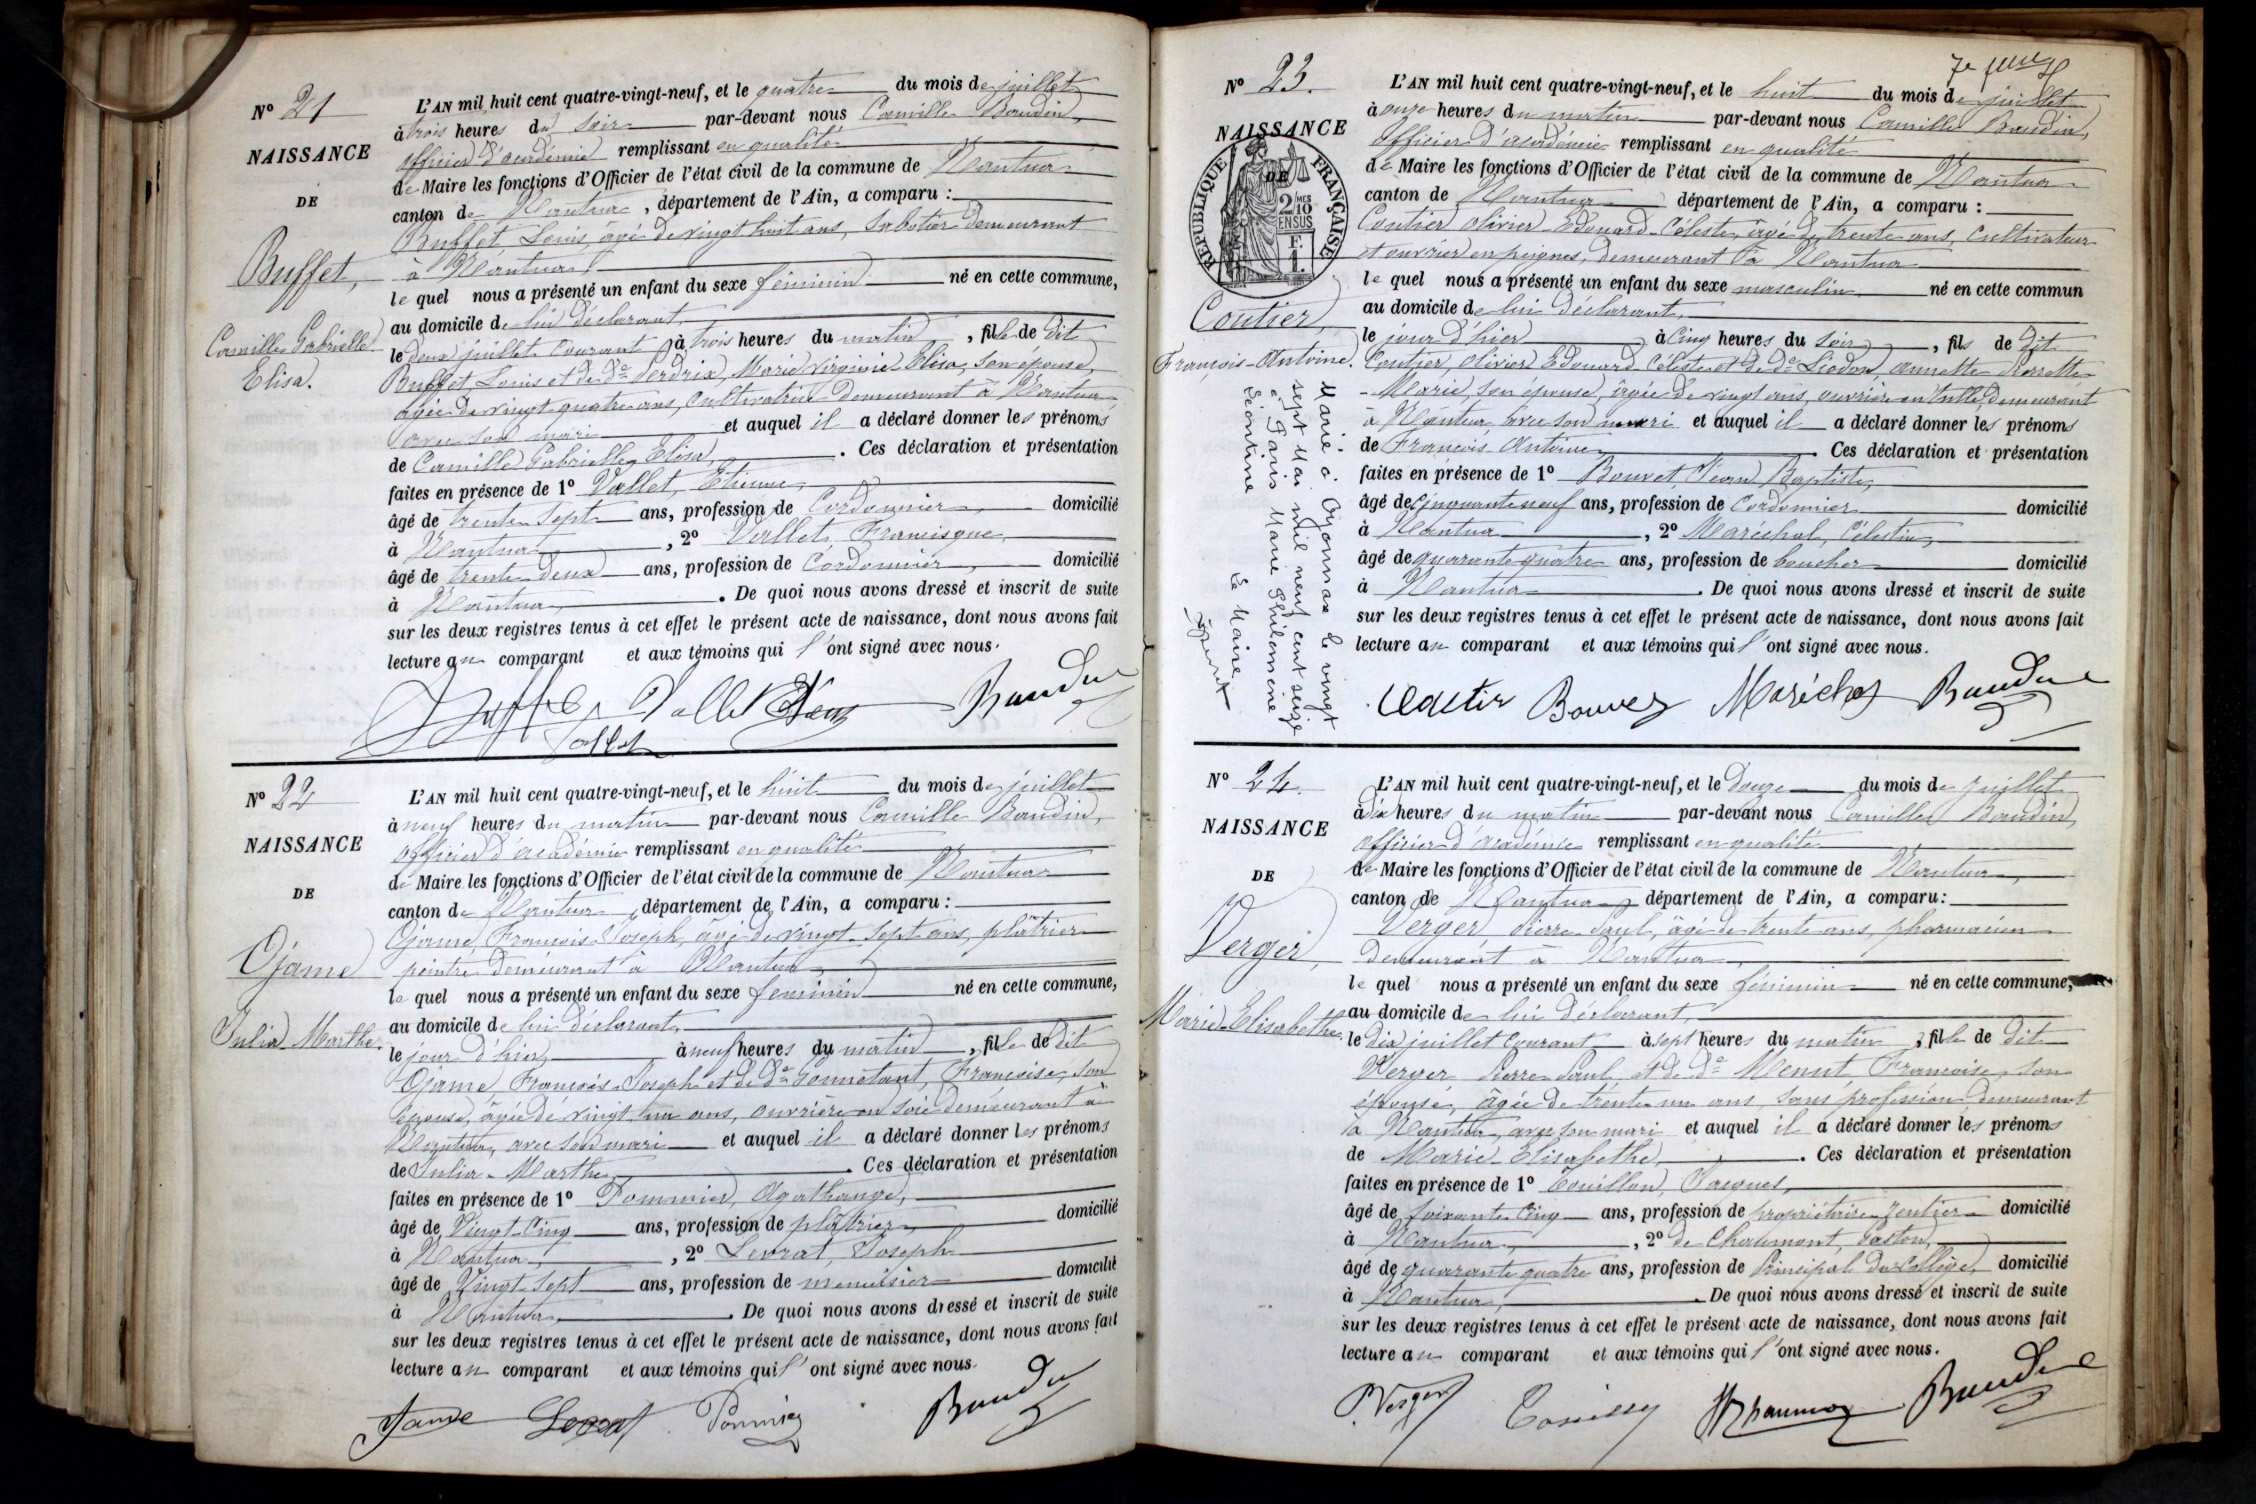 N° 21
NAISSANCE
DE
Buffet,
Camille Gabrielle
Elisa.
L'AN mil huit cent quatre-vingt-neuf, et le quatre du mois de juillet
à trois heures du soir par-devant nous Camille Baudin,
officier d'académie remplissant en qualité
de Maire les fonctions d'Officier de l'état civil de la commune de Nantua
canton de Nantua, département de l'Ain, a comparu :
Buffet, Louis, âgé de vingt huit ans, sabotier demeurant
à Nantua
le quel nous a présenté un enfant du sexe féminin né en cette commune,
au domicile de lui déclarant
le deux juillet courant à trois heures du matin, fille de dit
Buffet, Louis et de de Perdrix, Marie Virginie Elisa, son épouse,
âgée de vingt quatre ans, cultivatrice demeurant à Nantua
avec son mari et auquel il a déclaré donner les prénoms
de Camille Gabrielle Elisa, . Ces déclaration et présentation
faites en présence de 1° Vallet, Etienne,
âgé de trente sept ans, profession de Cordonnier, domicilié
à Nantua, 2° Vallet, Francisque,
âgé de trente deux ans, profession de Cordonnier, domicilié
à Nantua, . De quoi nous avons dressé et inscrit de suite
sur les deux registres tenus à cet effet le présent acte de naissance, dont nous avons fait
lecture au comparant et aux témoins qui l'ont signé avec nous.
Buffet Vallet Baudin
Vallet
N° 22
NAISSANCE
DE
Ojame
Julia-Marthe.
L'AN mil huit cent quatre-vingt-neuf, et le huit du mois de juillet
à neuf heures du matin par-devant nous Camille Baudin,
officier d'académie remplissant en qualité
de Maire les fonctions d'Officier de l'état civil de la commune de Nantua
canton de Nantua, département de l'Ain, a comparu :
Ojame, François-Joseph, âgé de vingt-sept ans, plâtrier
peintre demeurant à Nantua
le quel nous a présenté un enfant du sexe féminin né en cette commune,
au domicile de lui déclarant,
le jour d'hier, à neuf heures du matin, fille de dit
Ojame, François-Joseph et de de Gonnetant, Françoise, son
épouse, âgée de vingt un ans, ouvrière en soie demeurant à
Nantua, avec son mari et auquel il a déclaré donner les prénoms
de Julia-Marthe, . Ces déclaration et présentation
faites en présence de 1° Pommier, Agathange,
âgé de Vingt-Cinq ans, profession de plâtrier, domicilié
à Nantua, , 2° Levrat, Joseph
âgé de Vingt Sept ans, profession de menuisier domicilié
à Nantua, . De quoi nous avons dressé et inscrit de suite
sur les deux registres tenus à cet effet le présent acte de naissance, dont nous avons fait
lecture au comparant et aux témoins qui l'ont signé avec nous.
Jame Levrat Pommier Baudin
N° 23.
NAISSANCE
DE
RÉPUBLIQUE FRANÇAISE
2 MES 10
EN SUS
F.
1.
Coutier,
François-Antoine.
Marié à Oyonnax le vingt
sept Mai mil neuf cent seize
à Paris Marie Philomène
Léontine
Le Maire,
L'AN mil huit cent quatre-vingt-neuf, et le huit du mois de juillet
à onze heures du matin par-devant nous Camille Baudin,
officier d'académie remplissant en qualité
de Maire les fonctions d'Officier de l'état civil de la commune de Nantua
canton de Nantua département de l'Ain, a comparu :
Coutier Olivier-Edouard-Céleste, âgé de trente ans, cultivateur
et ouvrier en peignes, demeurant à Nantua
le quel nous a présenté un enfant du sexe masculin né en cette commun
au domicile de lui déclarant,
le jour d'hier à Cinq heures du soir, fils de dit
Coutier, Olivier Edouard Céleste et de de Liodon, annette Rosette
-Marie, son épouse, âgée de vingt ans, ouvrière en tulle, demeurant
à Nantua avec son mari et auquel il a déclaré donner les prénoms
de François Antoine, . Ces déclaration et présentation
faites en présence de 1° Bouvet, Jean Baptiste,
âgé de Cinquante neuf ans, profession de Cordonnier domicilié
à Nantua, 2° Maréchal, Célestin,
âgé de quarante quatre ans, profession de boucher domicilié
à Nantua . De quoi nous avons dressé et inscrit de suite
sur les deux registres tenus à cet effet le présent acte de naissance, dont nous avons fait
lecture au comparant et aux témoins qui l'ont signé avec nous.
Coutier Bouvet Maréchal Baudin
N° 24.
NAISSANCE
DE
Verger,
Marie-Elisabethe.
L'AN mil huit cent quatre-vingt-neuf, et le Douze du mois de juillet
à dix heures du matin par-devant nous Camille Baudin,
officier d'académie remplissant en qualité
de Maire les fonctions d'Officier de l'état civil de la commune de Nantua,
canton de Nantua, département de l'Ain, a comparu:
Verger, Pierre Paul, âgé de trente ans, pharmacien
demeurant à Nantua,
le quel nous a présenté un enfant du sexe féminin né en cette commune,
au domicile de lui déclarant,
le dix juillet courant à sept heures du matin, fille de dit
Verger Pierre Paul et de de Menut, Françoise, son
épouse, âgée de trente un ans, sans profession demeurant
à Nantua, avec son mari et auquel il a déclaré donner les prénoms
de Marie-Elisabethe, . Ces déclaration et présentation
faites en présence de 1° Convillon, Jacques,
âgé de soixante cinq ans, profession de propriétaire-rentier domicilié
à Nantua, , 2° de Chaumont, Gaston,
âgé de quarante quatre ans, profession de Principal du Collège, domicilié
à Nantua, . De quoi nous avons dressé et inscrit de suite
sur les deux registres tenus à cet effet le présent acte de naissance, dont nous avons fait
lecture au comparant et aux témoins qui l'ont signé avec nous.
P. Verger Baudin